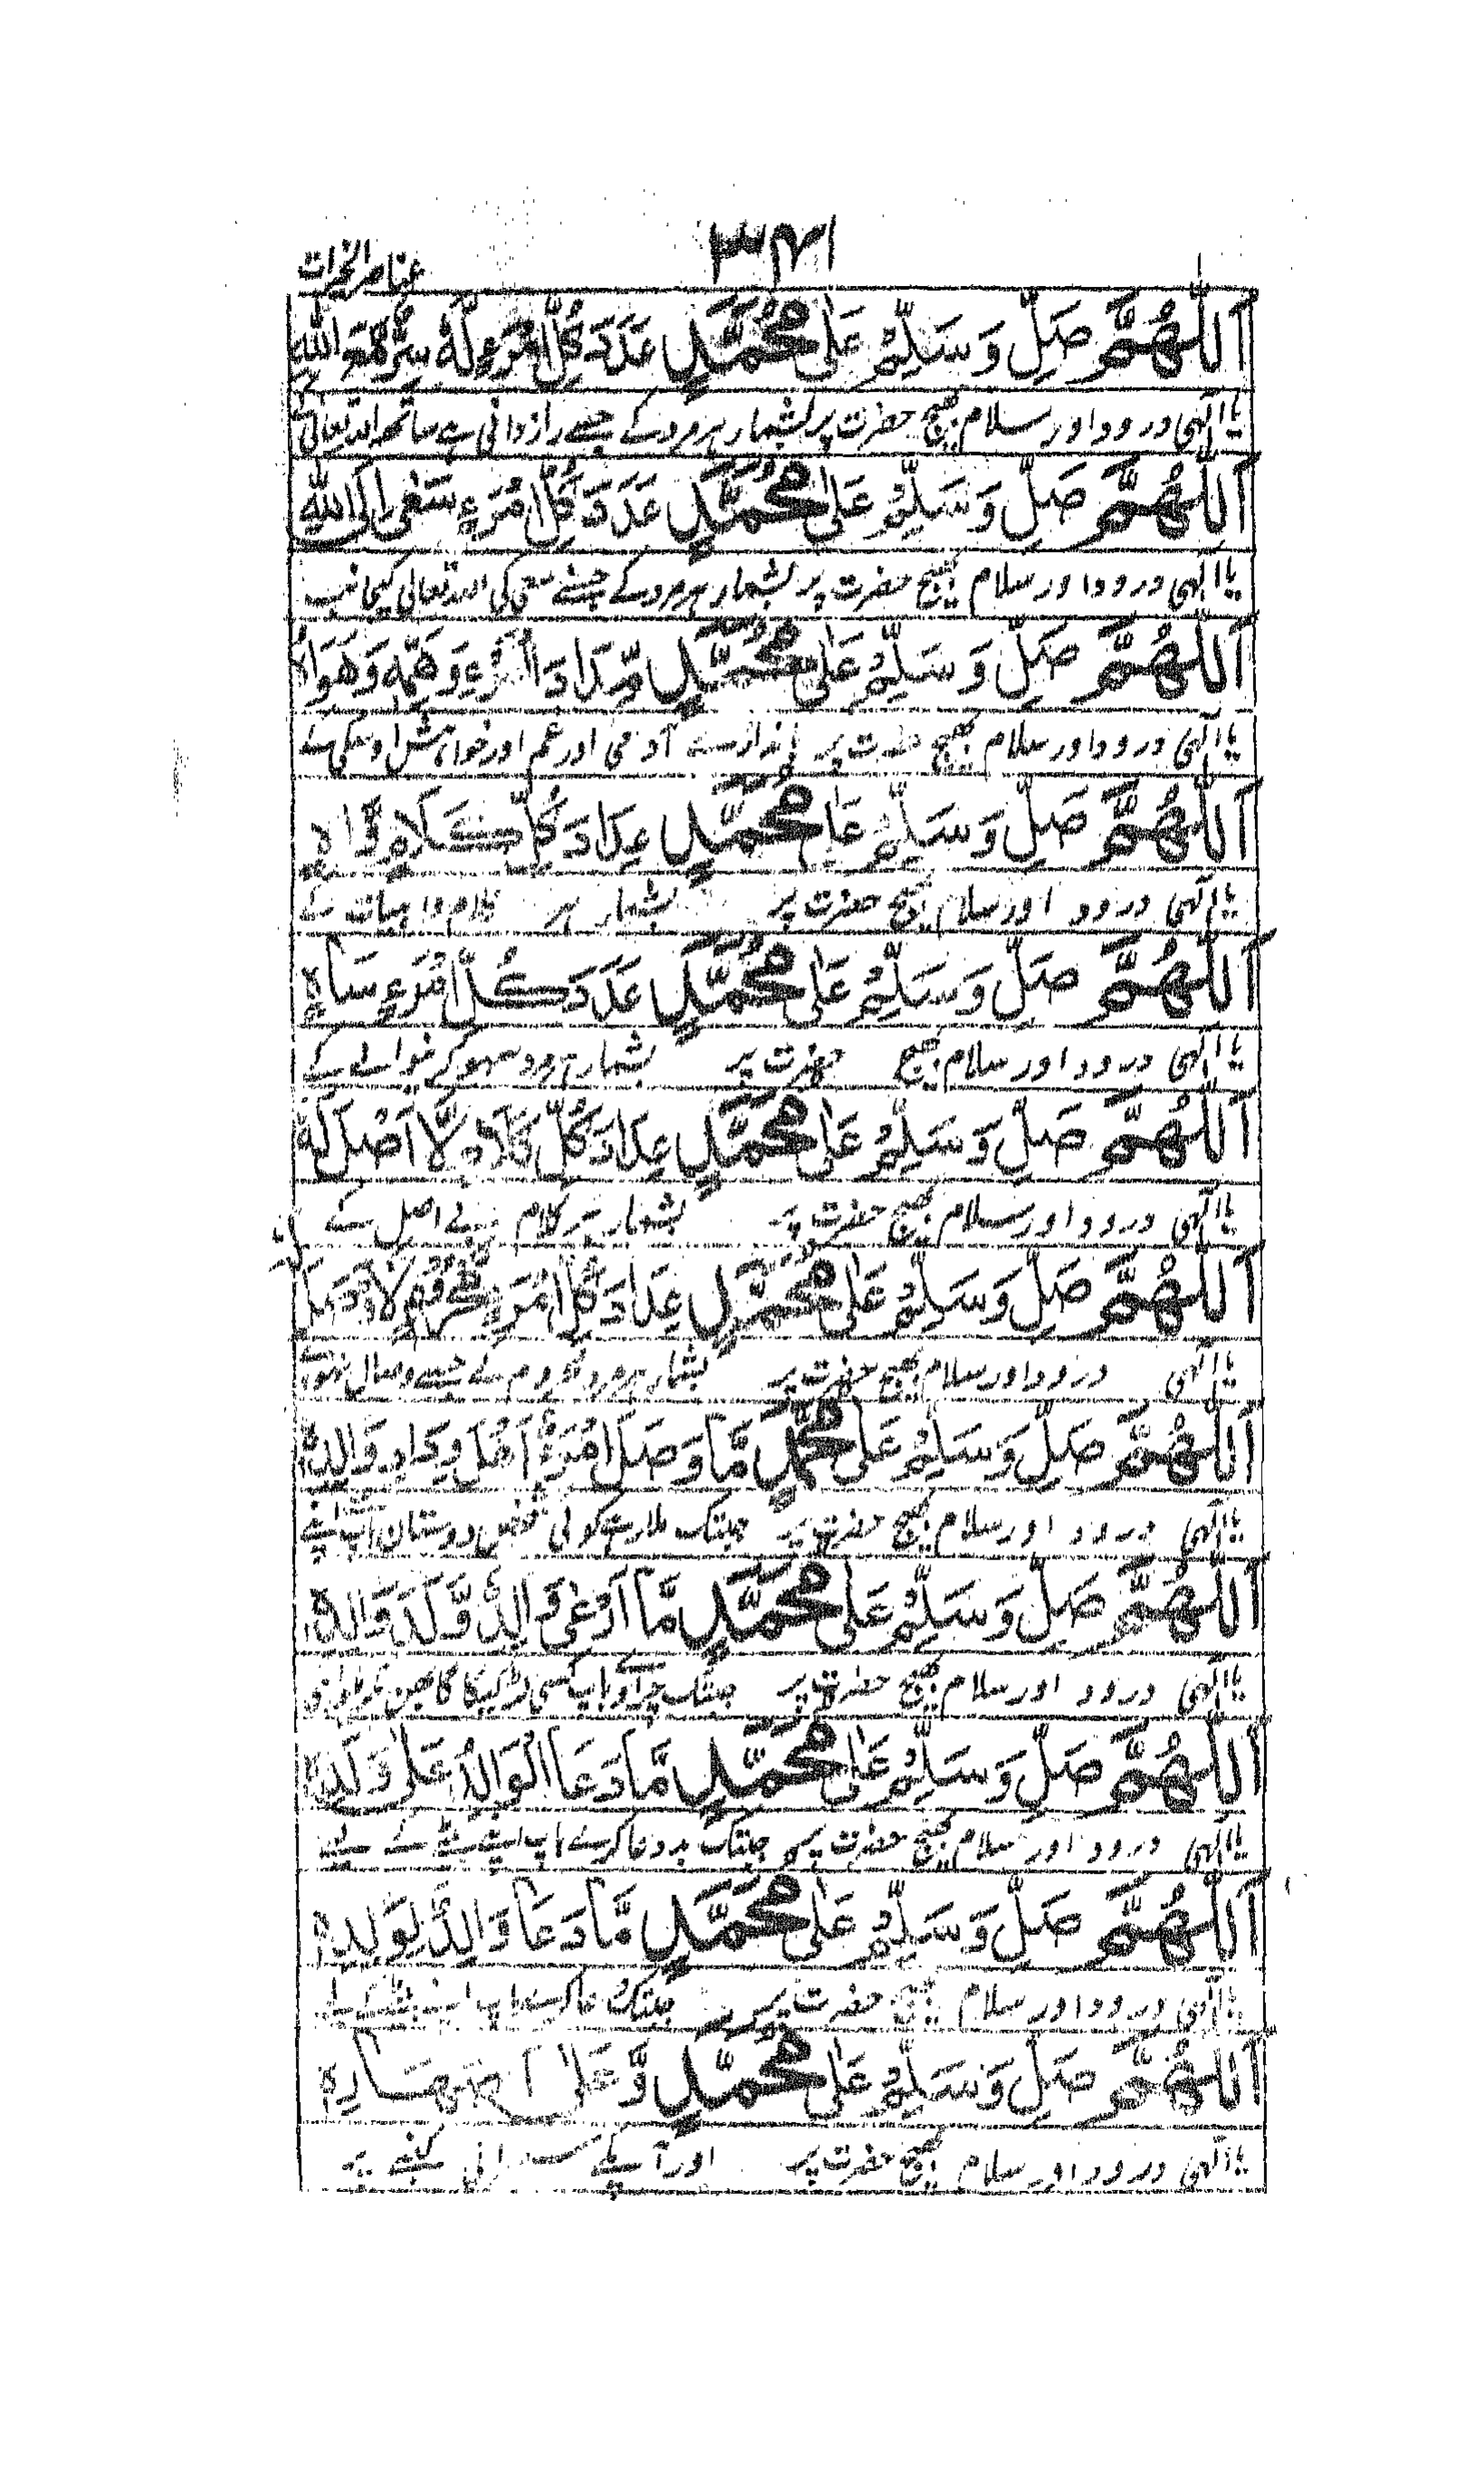 ۳۴۱
عناصر الخیرات
اَللّٰهُمَّ صَلِّ وَسَلِّمْ عَلٰی مُحَمَّدٍ عَدَدَ كُلِّ امْرَءٍ لَهٗ اللّٰهِ
یا الٰہی درود اور سلام بھیج حضرت پر بشمار ہر مرد کے جسے رازدانی ہے ساتھ اللہ تعالیٰ
اَللّٰهُمَّ صَلِّ وَسَلِّمْ عَلٰی مُحَمَّدٍ عَدَدَ كُلِّ امْرَءٍ سَعٰی اِلَی اللّٰهِ
یا الٰہی درود اور سلام بھیج حضرت پر بشمار ہر مرد کے جسنے سعی کی اللہ تعالی کیجانب
اَللّٰهُمَّ صَلِّ وَسَلِّمْ عَلٰی مُحَمَّدٍ مِّدَادَ الْمَرْءِ وَهَمِّهٖ وَهَوَاهُ
یا الٰہی درود اور سلام بھیج حضرت پر اندازے آدمی اور غم اور خواہش اوسکی کے
اَللّٰهُمَّ صَلِّ وَسَلِّمْ عَلٰی مُحَمَّدٍ عِدَادَ كُلِّ كَلَامٍ وَّاهٍ
یا الٰہی درود اور سلام بھیج حضرت پر بشمار ہر کلام واہیات کے
اَللّٰهُمَّ صَلِّ وَسَلِّمْ عَلٰی مُحَمَّدٍ عَدَدَ كُلِّ امْرَءٍ سَاهٍ
یا الٰہی درود اور سلام بھیج حضرت پر بشمار ہر مرد سہو کرنیوالے کے
اَللّٰهُمَّ صَلِّ وَسَلِّمْ عَلٰی مُحَمَّدٍ عِدَادَ كُلِّ كَلَامٍ لَّا اَصْلَ لَهٗ
یا الٰہی درود اور سلام بھیج حضرت پر بشمار ہر کلام بے اصل کے
اَللّٰهُمَّ صَلِّ وَسَلِّمْ عَلٰی مُحَمَّدٍ عِدَادَ كُلِّ امْرَءٍ مَّحْرُوْمٍ
یا الٰہی درود اور سلام بھیج حضرت پر بشمار ہر مرد محروم کے جسے وصال
اَللّٰهُمَّ صَلِّ وَسَلِّمْ عَلٰی مُحَمَّدٍ مَّا وَصَلَ امْرَءٌ اَهْلَ
یا الٰہی درود اور سلام بھیج حضرت پر جبتک ملارہے کوئی شخص دوستان
اَللّٰهُمَّ صَلِّ وَسَلِّمْ عَلٰی مُحَمَّدٍ مَّا
یا الٰہی درود اور سلام بھیج حضرت پر جبتک
اَللّٰهُمَّ صَلِّ وَسَلِّمْ عَلٰی مُحَمَّدٍ مَّا دَعَا الْوَالِدُ عَلٰی وَلَدِهٖ
یا الٰہی درود اور سلام بھیج حضرت پر جبتک بددعا کرے باپ اپنے بیٹے کے لیے
اَللّٰهُمَّ صَلِّ وَسَلِّمْ عَلٰی مُحَمَّدٍ مَّا دَعَا وَالِدٌ لِوَلَدِهٖ
یا الٰہی درود اور سلام بھیج حضرت پر جبتک دعا کرے باپ اپنے بیٹے کے لیے
اَللّٰهُمَّ صَلِّ وَسَلِّمْ عَلٰی مُحَمَّدٍ وَّعَلٰی اَصْهَارِهٖ
یا الٰہی درود اور سلام بھیج حضرت پر اور آپکے سسرالی کنبے پر